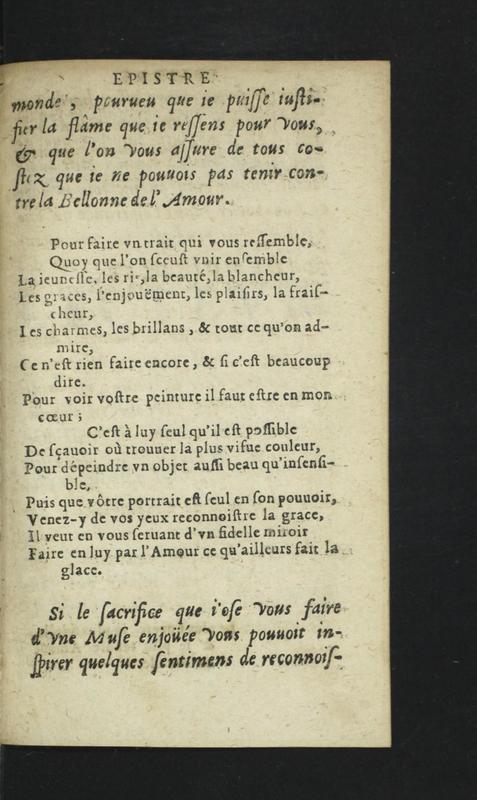 EPISTRE
monde, pourueu que ie puisse iusti-
fier la flâme que ie ressens pour vous,
& que l'on vous assure de tous co-
stez que ie ne pouuois pas tenir con-
tre la Bellonne de l'Amour.
Pour faire vn trait qui vous ressemble,
Quoy que l'on sceust vnir ensemble
La ieunesse, les ris, la beauté, la blancheur,
Les graces, l'enjouëment, les plaisirs, la frais-
cheur,
Les charmes, les brillans, & tout ce qu'on ad-
mire,
Ce n'est rien faire encore, & si c'est beaucoup
dire.
Pour voir vostre peinture il faut estre en mon
cœur;
C'est à luy seul qu'il est possible
De sçauoir où trouuer la plus vifue couleur,
Pour dépeindre vn objet aussi beau qu'insensi-
ble,
Puis que vôtre portrait est seul en son pouuoir,
Venez-y de vos yeux reconnoistre la grace,
Il veut en vous seruant d'vn fidelle miroir
Faire en luy par l'Amour ce qu'ailleurs fait la
glace.
Si le sacrifice que i'ose vous faire
d'vne Muse enjoüée vous pouuoit in-
spirer quelques sentimens de reconnois-